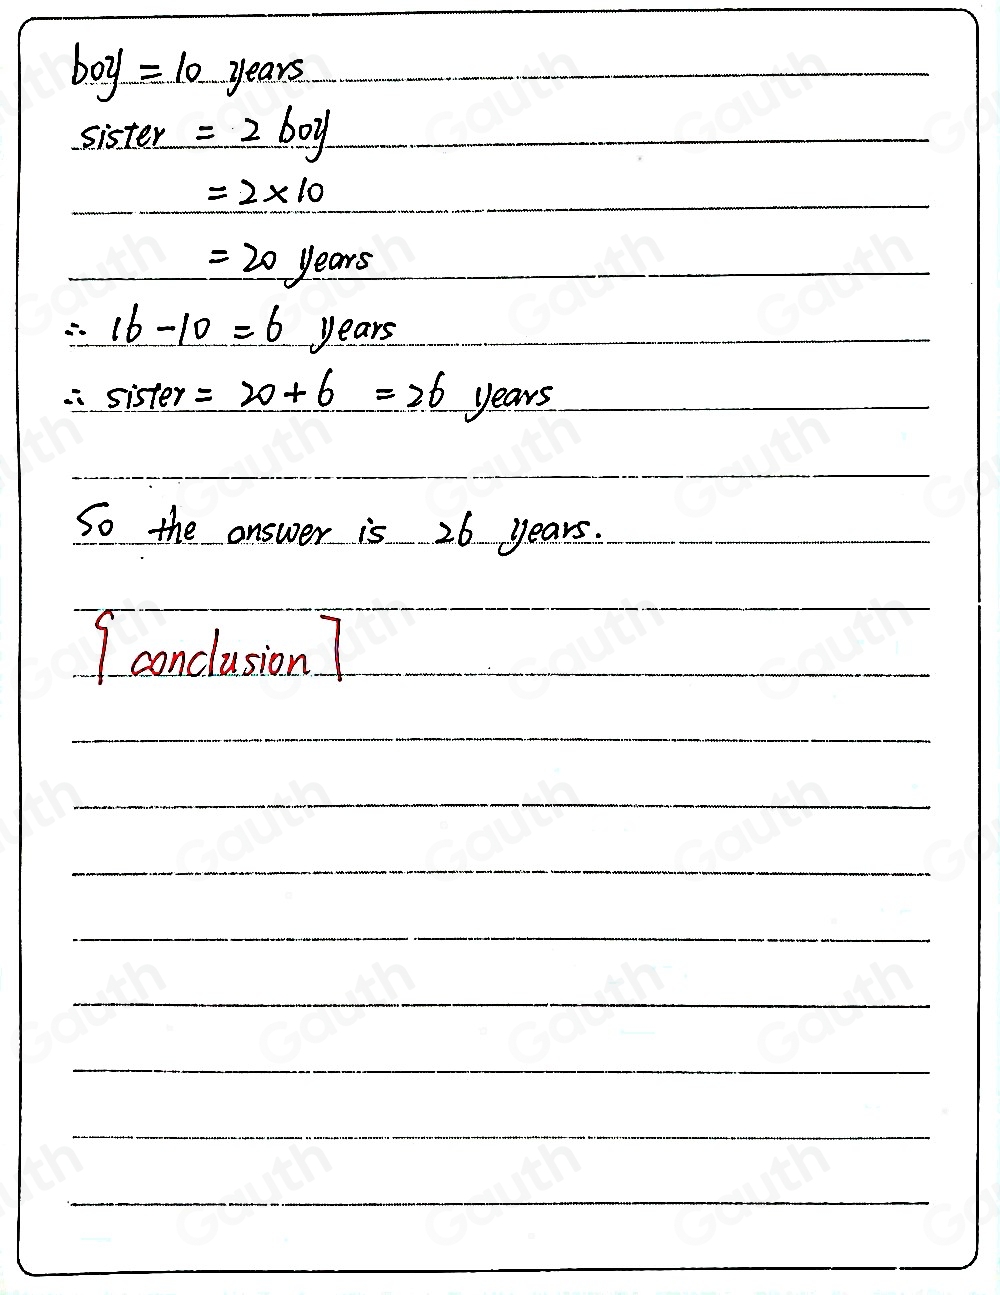 boy = 10 years
sister = 2 boy
= 2 × 10
= 20 years
∴ 16 - 10 = 6 years
∴ sister = 20 + 6 = 26 years
So the answer is 26 years.
[conclusion]